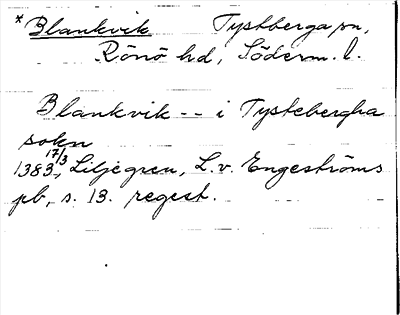 * Blankvik Tystberga sn,
Rönö hd, Söderm. l.
Blankvik -- i Tystebergha
sokn
1383 17/3, Liljegren, L. v. Engeströms
pb, s. 13. regest.